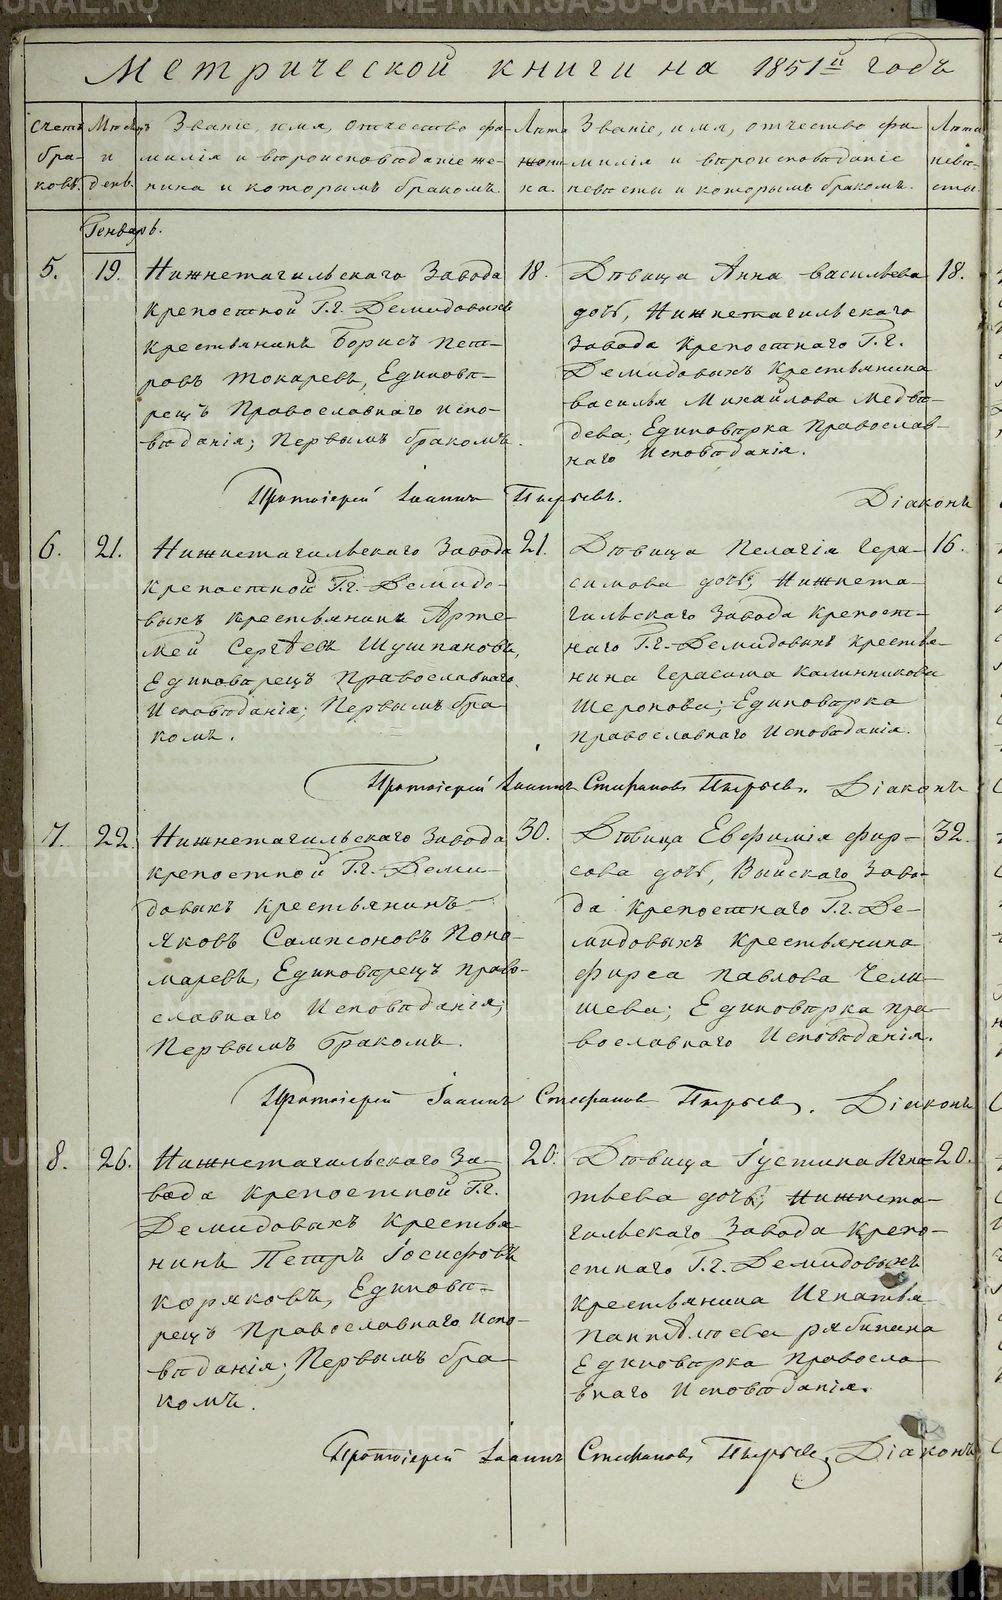 METRIKI.GASO-URAL.RU
Метрической книги на 1851й годъ
Счетъ браковъ.
Мѣсяцъ и день.
Званіе, имя, отчество, фамилія и вѣроисповѣданіе жениха и которымъ бракомъ.
Лѣта жениха.
Званіе, имя, отчество, фамилія и вѣроисповѣданіе невѣсты и которымъ бракомъ.
Лѣта невѣсты
Генварь.
5.
19.
Нижнетагильскаго Завода
Крепостной Г.г. Демидовыхъ
Крестьянинъ Борисъ Пет-
ровъ Токаревъ, Единовѣ-
рецъ Православнаго испо-
вѣданія; Первымъ бракомъ.
18.
Дѣвица Анна Васильева
дочь, Нижнетагильскаго
Завода Крепостнаго Г.г.
Демидовыхъ Крестьянина
Василья Михайлова Медвѣ-
дева; Единовѣрка Православ-
наго Исповѣданія.
18.
Протоіерей Іоаннъ Пырьевъ.
Діаконъ
6.
21.
Нижнетагильскаго Завода
Крепостной Г.г. Демидо-
выхъ крестьянинъ Арте-
мей Сергѣевъ Шушпановъ,
Единовѣрецъ Православнаго
Исповѣданія; Первымъ бра-
комъ.
21.
Дѣвица Пелагія Гера-
симова дочь, Нижнета-
гильскаго Завода Крепост-
наго Г.г. Демидовыхъ крестья-
нина Герасима Калинникова
Шеронова; Единовѣрка
Православнаго Исповѣданія.
16.
Протоіерей Іоаннъ Стефановъ Пырьевъ. Діаконъ
7.
22.
Нижнетагильскаго Завода
крепостной Г.г. Деми-
довыхъ крестьянинъ
Яковъ Сампсоновъ Поно-
маревъ, Единовѣрецъ Право-
славнаго Исповѣданія;
Первымъ бракомъ.
30.
Дѣвица Евфимія Фир-
сова дочь, Выйскаго Заво-
да крепостнаго Г.г. Де-
мидовыхъ крестьянина
Фирса Павлова Чели-
шева; Единовѣрка пра-
вославнаго Исповѣданія.
32.
Протоіерей Іоаннъ Стефановъ Пырьевъ. Діаконъ
8.
26.
Нижнетагильскаго За-
вода крепостной Г.г.
Демидовыхъ Крестья-
нинъ Петръ Іосифовъ
Коряковъ, Единовѣ-
рецъ Православнаго Испо-
вѣданія; Первымъ бра-
комъ.
20.
Дѣвица Іустина Игна-
тьева дочь, Нижнета-
гильскаго Завода Крепо-
стнаго Г.г. Демидовыхъ
Крестьянина Игнатья
Рябинина
Единовѣрка Правосла-
внаго Исповѣданія.
20.
Протоіерей Іоаннъ Стефановъ Пырьевъ. Діаконъ
METRIKI.GASO-URAL.RU